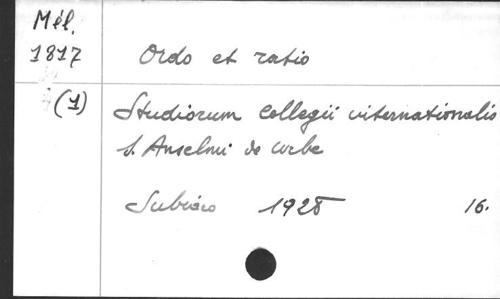 Mél.
1817 Ordo et ratio
(1) Studiorum Collegii internationalis
S. Anselmi de Urbe
Subiaco 1928 16.